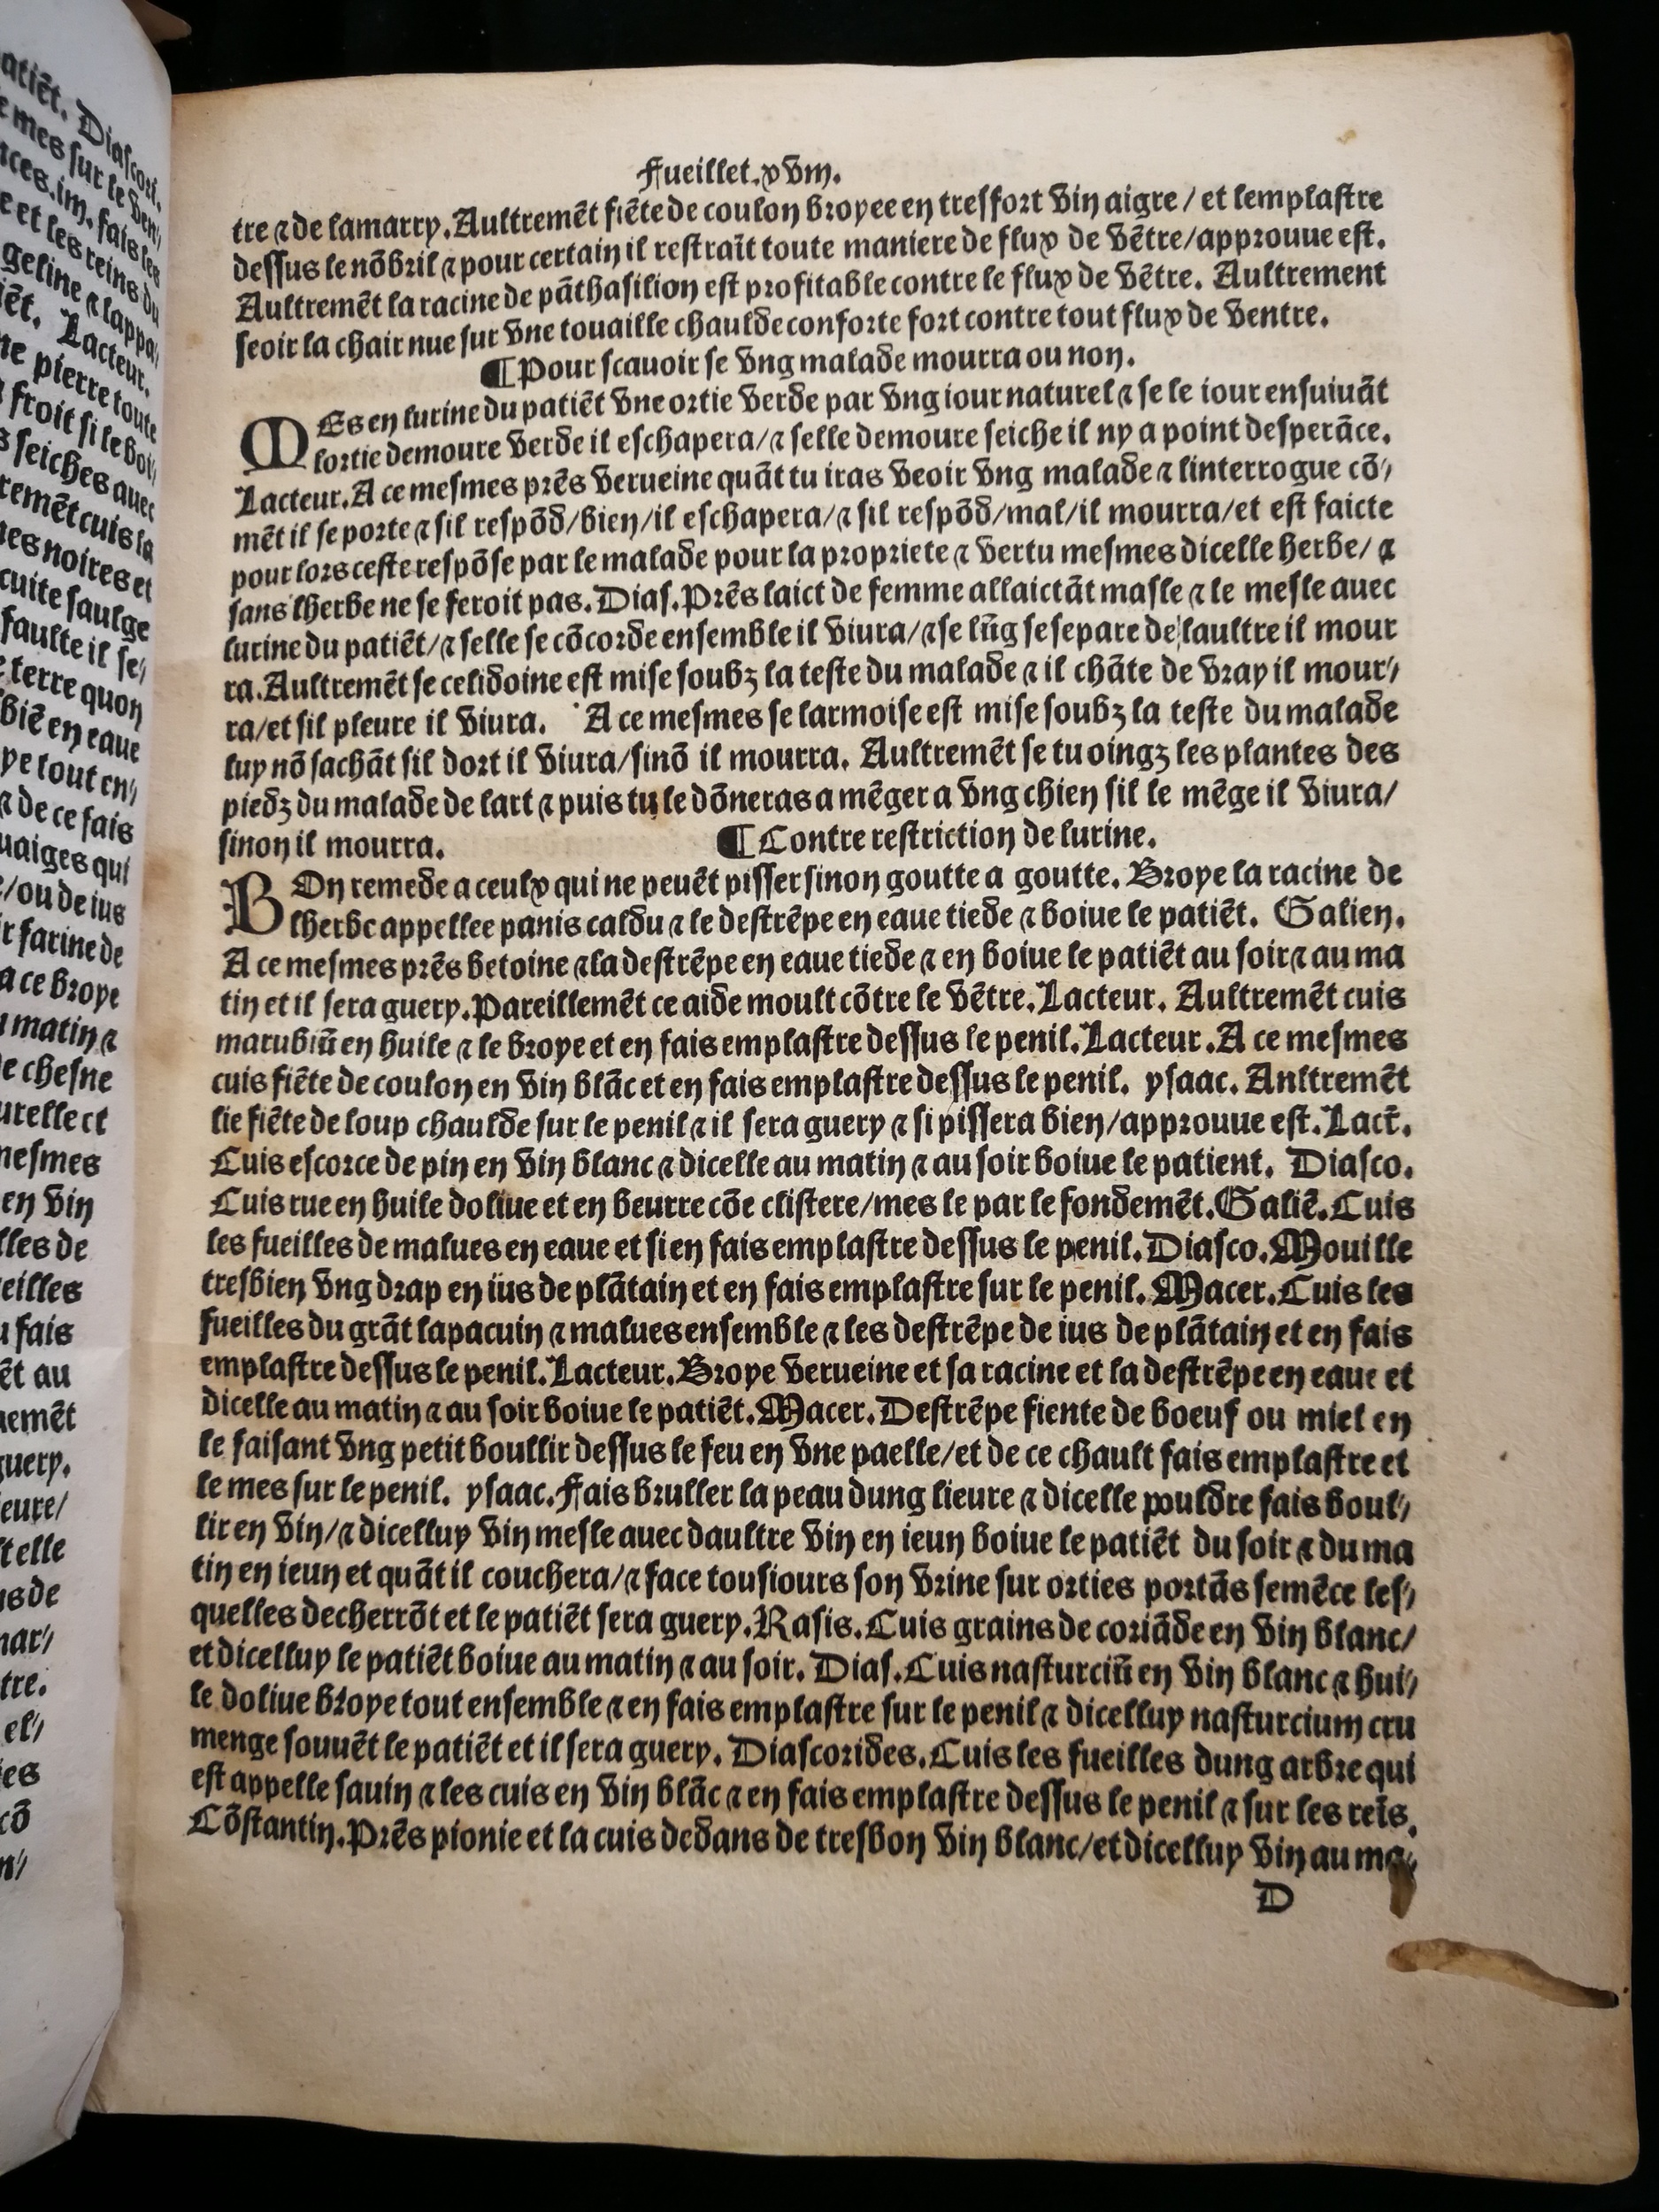 Fueillet.xviii.
tre ⁊ de lamarry. Aultremẽt fiẽte de coulon broyee en tresfort vin aigre / et lemplastre
dessus le nõbril ⁊ pour certain il restrait toute maniere de flux de vẽtre/approuue est.
Aultremẽt la racine de pãthasilion est profitable contre le flux de vẽtre. Aultrement
seoir la chair nue sur vne touaille chaulde conforte fort contre tout flux de ventre.
¶Pour scauoir se vng malade mourra ou non.
MEs en lurine du patiẽt vne ortie verde par vng iour naturel ⁊ se le iour ensuiuãt
lortie demoure verde il eschapera/⁊ selle demoure seiche il ny a point desperãce.
Lacteur. A ce mesmes prẽs verueine quãt tu iras veoir vng malade ⁊ linterrogue cõ⸗
mẽt il se porte ⁊ sil respõd/bien/il eschapera/⁊ sil respõd/mal/il mourra/et est faicte
pour lors ceste respõse par le malade pour la propriete ⁊ vertu mesmes dicelle herbe/ ⁊
sans lherbe ne se feroit pas. Dias. Prẽs laict de femme allaictãt masle ⁊ le mesle auec
lurine du patiẽt/⁊ selle se cõcorde ensemble il viura/⁊ se lũg se separe de laultre il mour
ra. Aultremẽt se celidoine est mise soubz la teste du malade ⁊ il chãte de vray il mour⸗
ra/et sil pleure il viura. A ce mesmes se larmoise est mise soubz la teste du malade
luy nõ sachãt sil dort il viura/sinõ il mourra. Aultremẽt se tu oingz les plantes des
piedz du malade de lart ⁊ puis tu le dõneras a mẽger a vng chien sil le mẽge il viura/
sinon il mourra. ¶Contre restriction de lurine.
BOn remede a ceulx qui ne peuẽt pisser sinon goutte a goutte. Broye la racine de
lherbe appellee panis caldu ⁊ le destrẽpe en eaue tiede ⁊ boiue le patiẽt. Galien.
A ce mesmes prẽs betoine ⁊ la destrẽpe en eaue tiede ⁊ en boiue le patiẽt au soir ⁊ au ma
tin et il sera guery. Pareillemẽt ce aide moult cõtre le vẽtre. Lacteur. Aultremẽt cuis
marubiũ en huile ⁊ le broye et en fais emplastre dessus le penil. Lacteur. A ce mesmes
cuis fiẽte de coulon en vin blãc et en fais emplastre dessus le penil. ysaac. Anltremẽt
lie fiẽte de loup chaulde sur le penil ⁊ il sera guery ⁊ si pissera bien/approuue est. Lact̃.
Cuis escorce de pin en vin blanc ⁊ dicelle au matin ⁊ au soir boiue le patient. Diasco.
Cuis rue en huile doliue et en beurre cõe clistere/mes le par le fondemẽt. Galiẽ. Cuis
les fueilles de malues en eaue et si en fais emplastre dessus le penil. Diasco. Mouille
tresbien vng drap en ius de plãtain et en fais emplastre sur le penil. Macer. Cuis les
fueilles du grãt lapacuin ⁊ malues ensemble ⁊ les destrẽpe de ius de plãtain et en fais
emplastre dessus le penil. Lacteur. Broye verueine et sa racine et la destrẽpe en eaue et
dicelle au matin ⁊ au soir boiue le patiẽt. Macer. Destrẽpe fiente de boeuf ou miel en
le faisant vng petit boullir dessus le feu en vne paelle/et de ce chault fais emplastre et
le mes sur le penil. ysaac. Fais bruller la peau dung lieure ⁊ dicelle pouldre fais boul⸗
lir en vin/⁊ dicelluy vin mesle auec daultre vin en ieun boiue le patiẽt du soir ⁊ du ma
tin en ieun et quãt il couchera/⁊ face tousiours son vrine sur orties portãs semẽce les⸗
quelles decherrõt et le patiẽt sera guery. Rasis. Cuis grains de coriãde en vin blanc/
et dicelluy le patiẽt boiue au matin ⁊ au soir. Dias. Cuis nasturciũ en vin blanc ⁊ hui⸗
le doliue broye tout ensemble ⁊ en fais emplastre sur le penil ⁊ dicelluy nasturcium cru
menge souuẽt le patiẽt et il sera guery. Diascorides. Cuis les fueilles dung arbre qui
est appelle sauin ⁊ les cuis en vin blãc ⁊ en fais emplastre dessus le penil ⁊ sur les reĩs.
Cõstantin. Prẽs pionie et la cuis dedans de tresbon vin blanc/et dicelluy vin au ma⸗
D